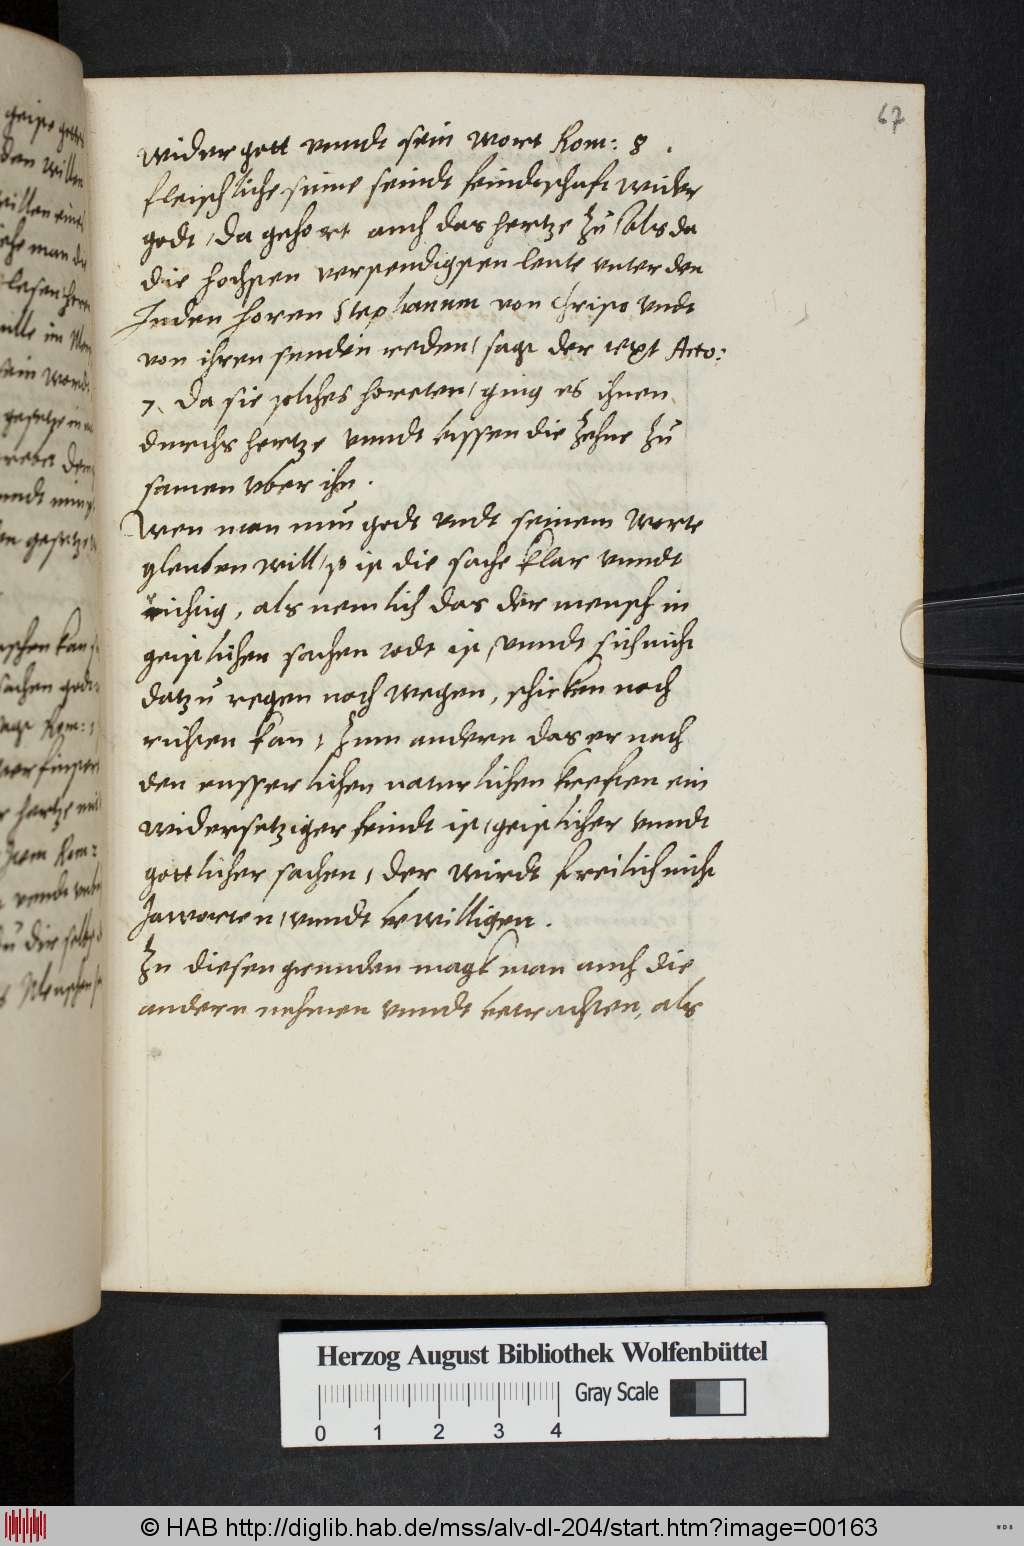 67
wider gott vnndt sein wort Rom: 8 .
fleischliche sinne seindt feindtschaft wider
godt, da gehort auch das hertze zu / als da
die hochsten verstendigsten leute vnter den
Juden horen Stephanum von Christo vndt
von ihren sunden reden, sagt der text Acto:
7. Da sie solches horeten, ging es ihnen
durchs hertze vnndt bissen die Zehne zu
samen vber ihn .
Wen man nun godt vndt seinem worte
gleuben will, so ist die sache klar vnndt
richtig, als nemlich das der mensch in
geistlichen sachen todt ist, vnndt sich nicht
datzu regen noch wegen, schicken noch
richten kan, Zum andern das er nach
den eusserlichen naturlichen kreften ein
widersetziger feindt ist, geistlicher vnndt
gottlicher sachen, der wirdt freilich nicht
Jaworten, vnndt bewilligen .
Zu diesen grunden magk man auch die
andern nehmen vnndt betrachten, als
Herzog August Bibliothek Wolfenbüttel
Gray Scale
0 1 2 3 4
© HAB http://diglib.hab.de/mss/alv-dl-204/start.htm?image=00163